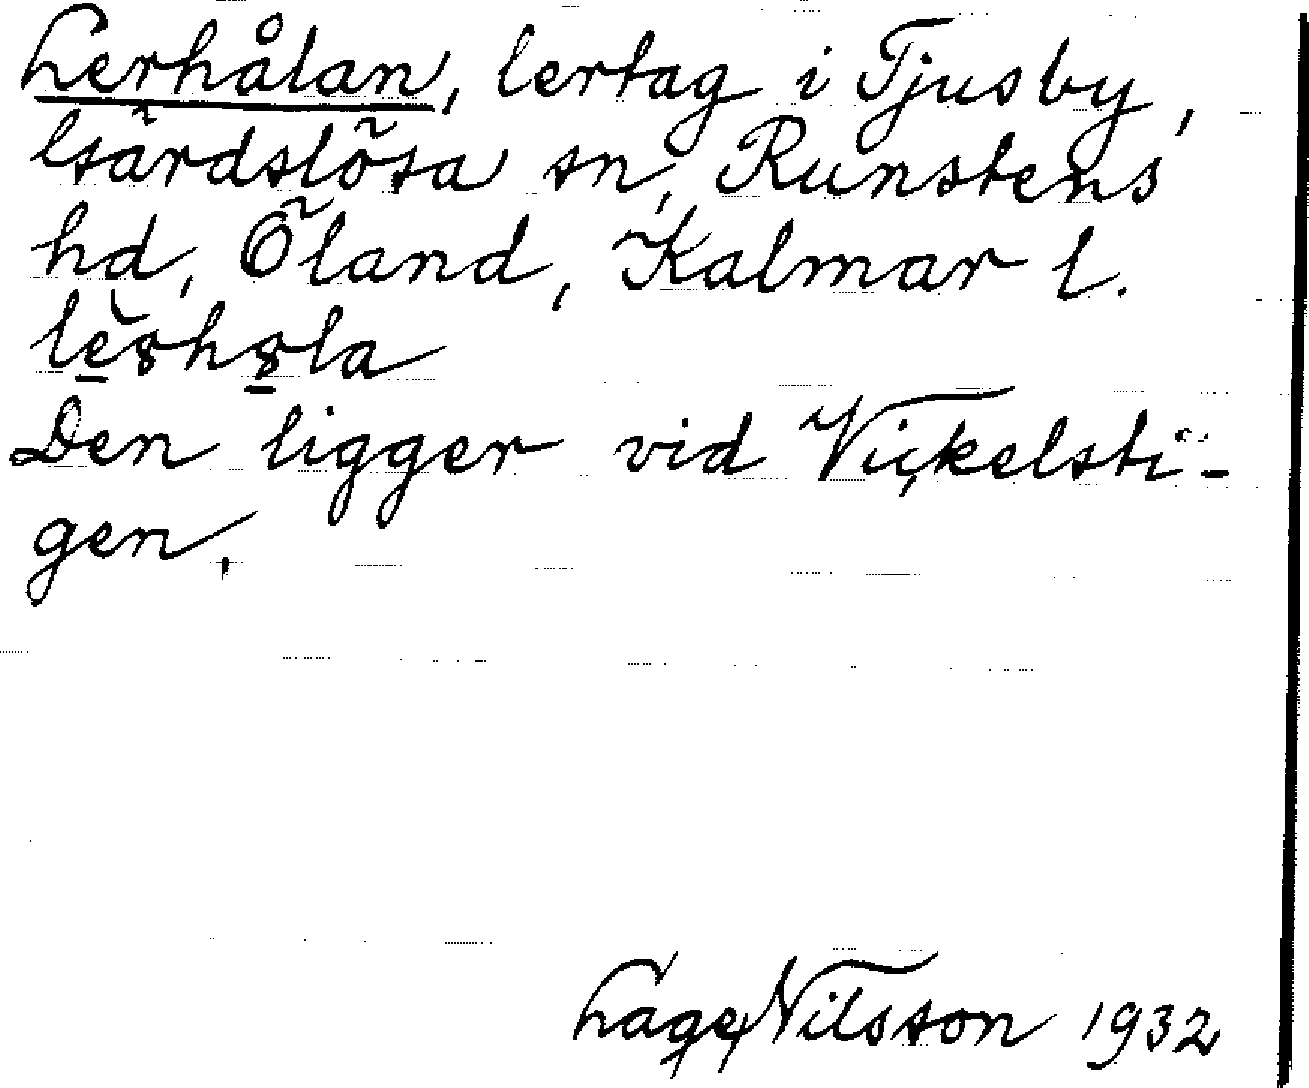 Lerhålan, lertag i Tjusby,
Gärdslösa sn, Runstens
hd, Öland, Kalmar l.
Den ligger vid Vickelsti-
gen.
Lage Nilsson 1932